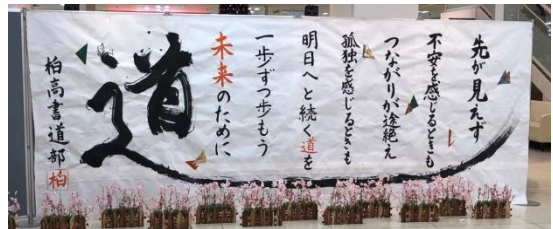 先が見えず
不安を感じるときも
つながりが途絶え
孤独を感じるときも
明日へと続く道を
一歩ずつ歩もう
未来のために
道
柏高書道部
柏